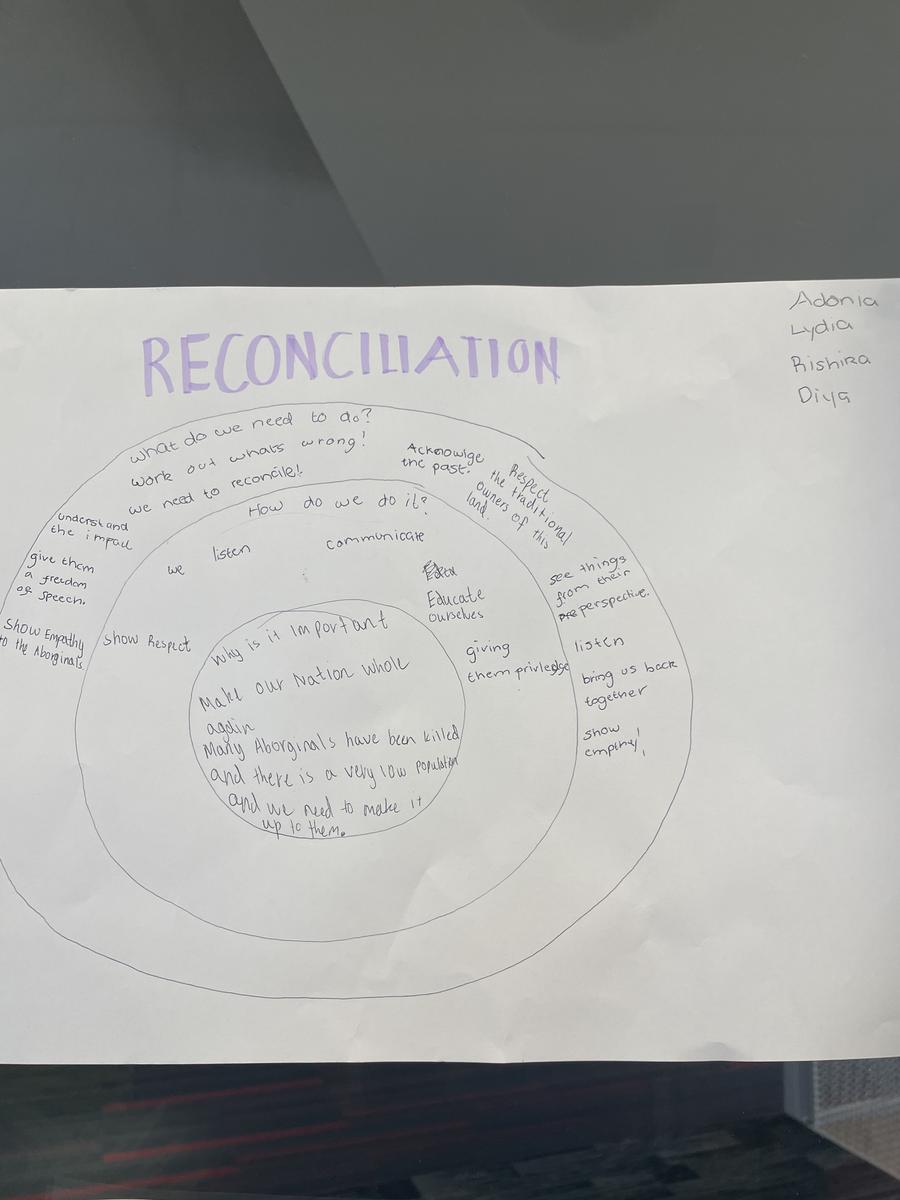 RECONCILIATION
Adonia
Lydia
Rishira
Diya
What do we need to do?
work out whats wrong!
we need to reconcile!
Acknowlge
the past.
Respect
the traditional
owners of this
land.
understand
the impact
give them
a freedom
of speech.
Show Empathy
to the Aboriginals
see things
from their
perspective.
listen
bring us back
together
show
empthy!
How do we do it?
we listen
communicate
Educate
ourselves
show Respect
giving
them privledge
Why is it Important
Make our Nation whole
again
Many Aborginals have been killed
and there is a very low population
and we need to make it
up to them.